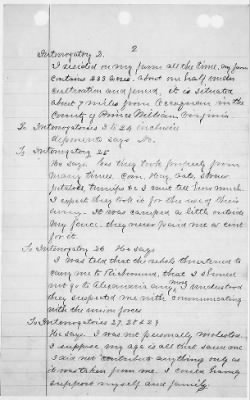 2
Interrogatory 2.
I resided on my farm all the time, my farm
contains 233 acres. about one half under
cultivation and fenced, it is situated
about 7 miles from Occoquan in the
County of Prince William Virginia
To Interrogatories 3 to 24 inclusive
deponent says No.
To Interrogatory 25
He says. Yes they took property from
me many times, Corn, Hay, oats, straw
potatoes, turnips &c I cant tell how much.
I expect they took it for the use of their
army. It was camped a little outside
my fence. they never paid me a cent
for it.
To Interrogatory 26 He says
I was told that the rebels threatened to
carry me to Richmond, that I should
not go to Alexandria any more I understood
they suspected me with communicating
with the union forces.
To Interrogatories 27. 28 & 29
He says. I was not personally molested.
I suppose my age is all that saved me
I did not contribute anything only as
it was taken from me. I could hardly
support myself and family.